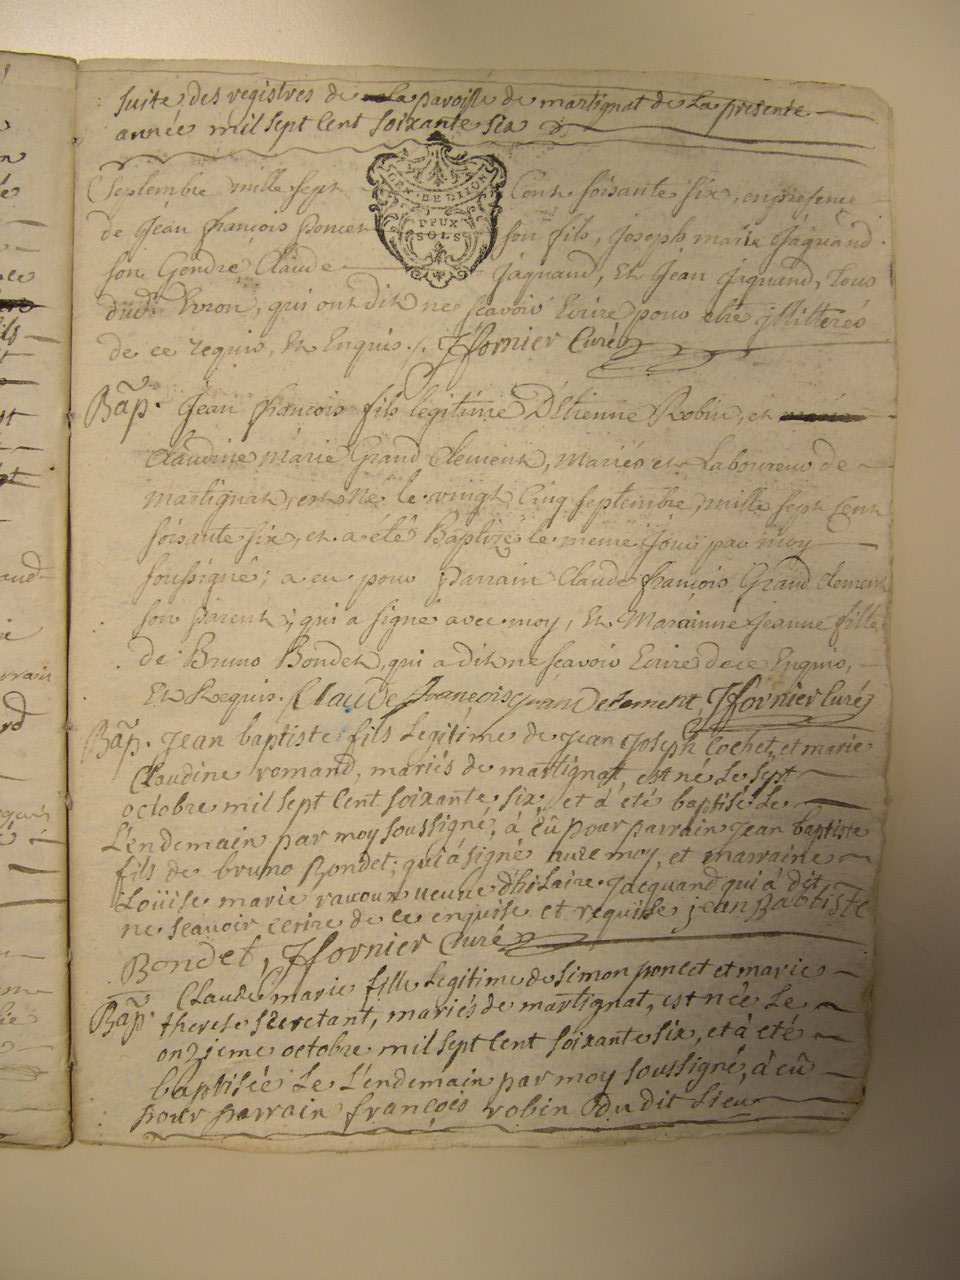 suite des registres de la paroisse de martignat de la presente
année mil sept cent soixante six
GEN. DE DIJON
DEUX
SOLS
Septembre mille sept Cent soisante six, en presence
de Jean françois Poncet son fils, Joseph marie Jaquand
son Gendre Claude Jaquand, et Jean Jiquand, tous
dud. Evron, qui ont dit ne scavoir Ecrire pour etre jllitterés
de ce requis, et Enquis./. JfFornier Curé
Bap. Jean françois fils legitime D'Etienne Robin, et
Claudine marie Grand Clement, Mariés et Laboureur de
Martignat, est Né le vingt Cinq septembre, mille sept Cent
soisante six, et a été Baptizé le meme Jour par moy
soussigné; a eu pour parrain Claude françois Grand Clement
son parent, qui a signé avec moy, et Marainne Jeanne fille
de Bruno Bondet, qui a dit ne scavoir Ecrire de ce Enquis,
Et Requis. Claude François grandclement JfFornier Curé
Bap. Jean baptiste fils legitime de Jean Joseph Cochet, et marie
Claudine romand, mariés de martignat, est né le sept
octobre mil sept cent soixante six, et à été baptisé le
L'endemain par moy soussigné, à eû pour parrain Jean baptiste
fils de bruno Bondet; qui à signé avec moy, et marraine
Loüise marie ravoux veuve d'hilaire Jacquand qui à dit
ne scavoir ecrire de ce enquise et requise jean Baptiste
Bondet, JfFornier Curé
Bap. Claude marie fille legitime de simon poncet et marie
therese secretant, mariés de martignat, est née le
onzieme octobre mil sept cent soixante six, et à eté
baptisée le L'endemain par moy soussigné, à eû
pour parrain françois robin du dit lieu